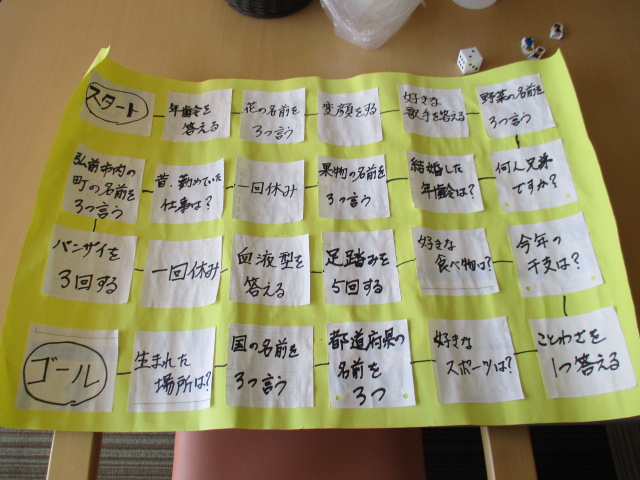 スタート
年齢を
答える
花の名前を
3つ言う
変顔をする
好きな
歌手を答える
野菜の名前を
3つ言う
弘前市内の
町の名前を
3つ言う
昔、勤めていた
仕事は?
一回休み
果物の名前を
3つ言う
結婚した
年齢は?
何人兄弟
ですか?
バンザイを
3回する
一回休み
血液型を
答える
足踏みを
5回する
好きな
食べ物は?
今年の
干支は?
ゴール
生まれた
場所は?
国の名前を
3つ言う
都道府県の
名前を
3つ
好きな
スポーツは?
ことわざを
1つ答える